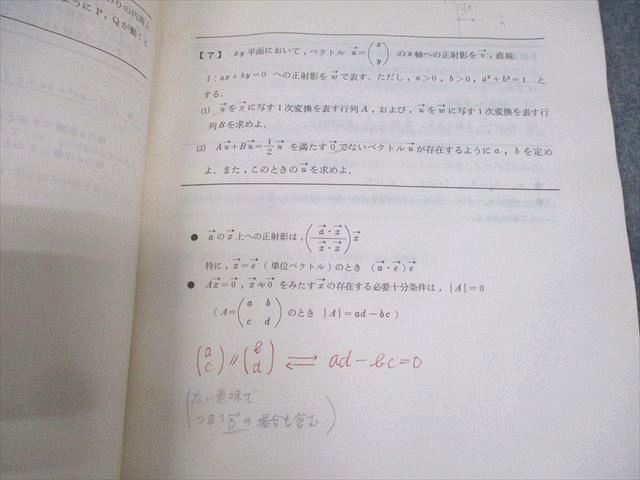 わりの円周上
ように P , Q が動くと
【7】 xy 平面において , ベクトル u→=(x y) の x 軸への正射影を v→ , 直線
l : ax+by=0 への正射影を w→ で表す . ただし , a>0 , b>0 , a²+b²=1 と
する .
(1) u→ を v→ に写す1次変換を表す行列 A , および , u→ を w→ に写す1次変換を表す行
列 B を求めよ .
(2) Au→+Bu→=1/2 u→ を満たす 0→ でないベクトル u→ が存在するように a , b を定め
よ . また , このときの u→ を求めよ .
● a→ の x→ 上への正射影は , (a→・x→ / x→・x→) x→
特に , x→=e→ ( 単位ベクトル ) のとき (a→・e→) e→
● Ax→=0→ , x→≠0→ をみたす x→ の存在する必要十分条件は , |A|=0
( A=(a b c d) のとき |A|=ad−bc )
(a c) // (b d) ⇔ ad−bc=0
(広い意味で
つまり 0→ の場合も含む)